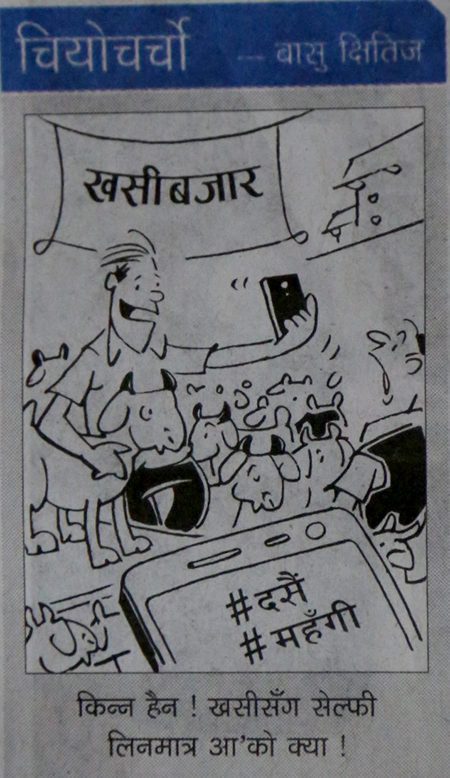 चियोचर्चो
--- बासु क्षितिज
खसीबजार
#दसैं
#महँगी
किन्न हैन ! खसीसँग सेल्फी
लिनमात्र आ'को क्या !